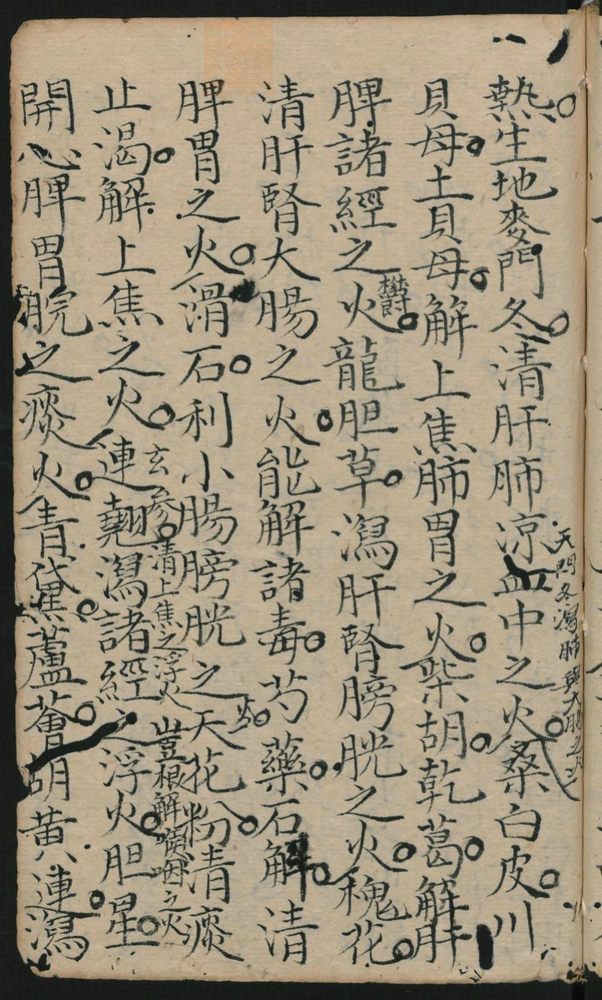 熱生地麥門冬清肝肺涼血中之火桑白皮川
天門冬瀉肺與大腸之火
貝母土貝母解上焦肺胃之火柴胡乾葛解肝
脾諸經之火鬱龍胆草瀉肝腎膀胱之火槐花
清肝腎大腸之火能解諸毒芍藥石解清
脾胃之火滑石利小腸膀胱之火天花粉清痰
止渴解上焦之火連翹瀉諸經之浮火胆星
玄參清上焦之浮火 山豆根解咽之火
開心脾胃脘之痰火青黛蘆薈胡黃連瀉